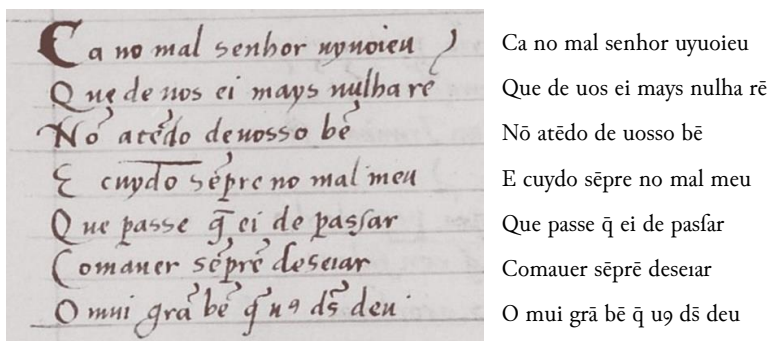 Ca no mal senhor uyuoieu
Que de uos ei mays nulha rē
Nō atēdo deuosso bē
E cuydo sēpre no mal meu
Que passe q̄ ei de pasſar
Comauer sēprē deseıar
O mui grā bē q̄ u9 ds̄ deu
Ca no mal senhor uyuoieu
Que de uos ei mays nulha rē
Nō atēdo de uosso bē
E cuydo sēpre no mal meu
Que passe q̄ ei de pasſar
Comauer sēprē deseıar
O mui grā bē q̄ u9 ds̄ deu